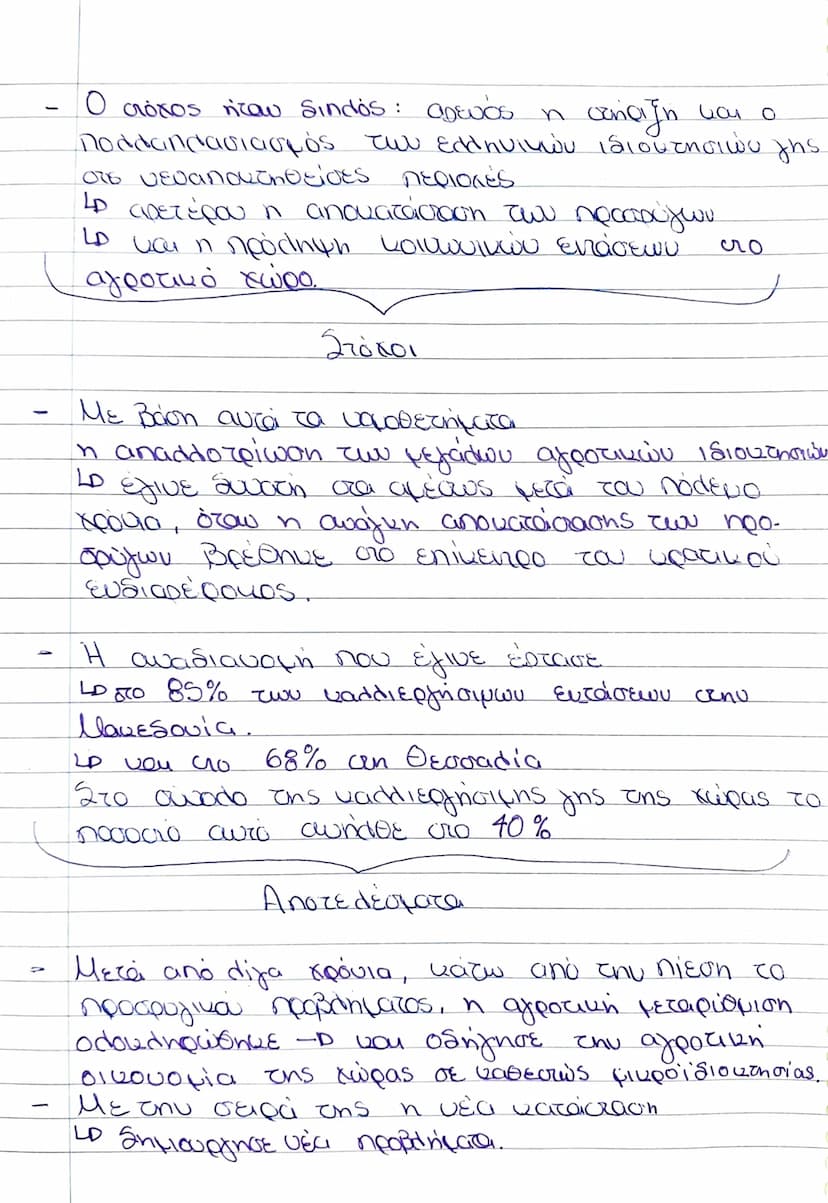 - Ο στόχος ήταν διπλός: αφενός η στήριξη και ο
πολλαπλασιασμός των ελληνικών ιδιοκτησιών γης
στο νεοαποκτηθείσες περιοχές
↳ αφετέρου η αποκατάσταση των προσφύγων
↳ και η πρόληψη κοινωνικών εντάσεων στο
αγροτικό χώρο.
Στόχοι
- Με βάση αυτά τα νομοθετήματα
η απαλλοτρίωση των μεγάλων αγροτικών ιδιοκτησιών
↳ έγινε δυνατή στα αμέσως μετά τον πόλεμο
χρόνια, όταν η ανάγκη αποκατάστασης των προ-
σφύγων βρέθηκε στο επίκεντρο του κρατικού
ενδιαφέροντος.
- Η αναδιανομή που έγινε έφτασε
↳ στο 85% των καλλιεργήσιμων εκτάσεων στην
Μακεδονία.
↳ και στο 68% στη Θεσσαλία
Στο σύνολο της καλλιεργήσιμης γης της χώρας το
ποσοστό αυτό ανήλθε στο 40%
Αποτελέσματα
- Μετά από λίγα χρόνια, κάτω από την πίεση το
προσφυγικού προβλήματος, η αγροτική μεταρύθμιση
ολοκληρώθηκε → και οδήγησε την αγροτική
οικονομία της χώρας σε καθεστώς μικροϊδιοκτησίας.
- Με την σειρά της η νέα κατάσταση
↳ δημιούργησε νέα προβλήματα.